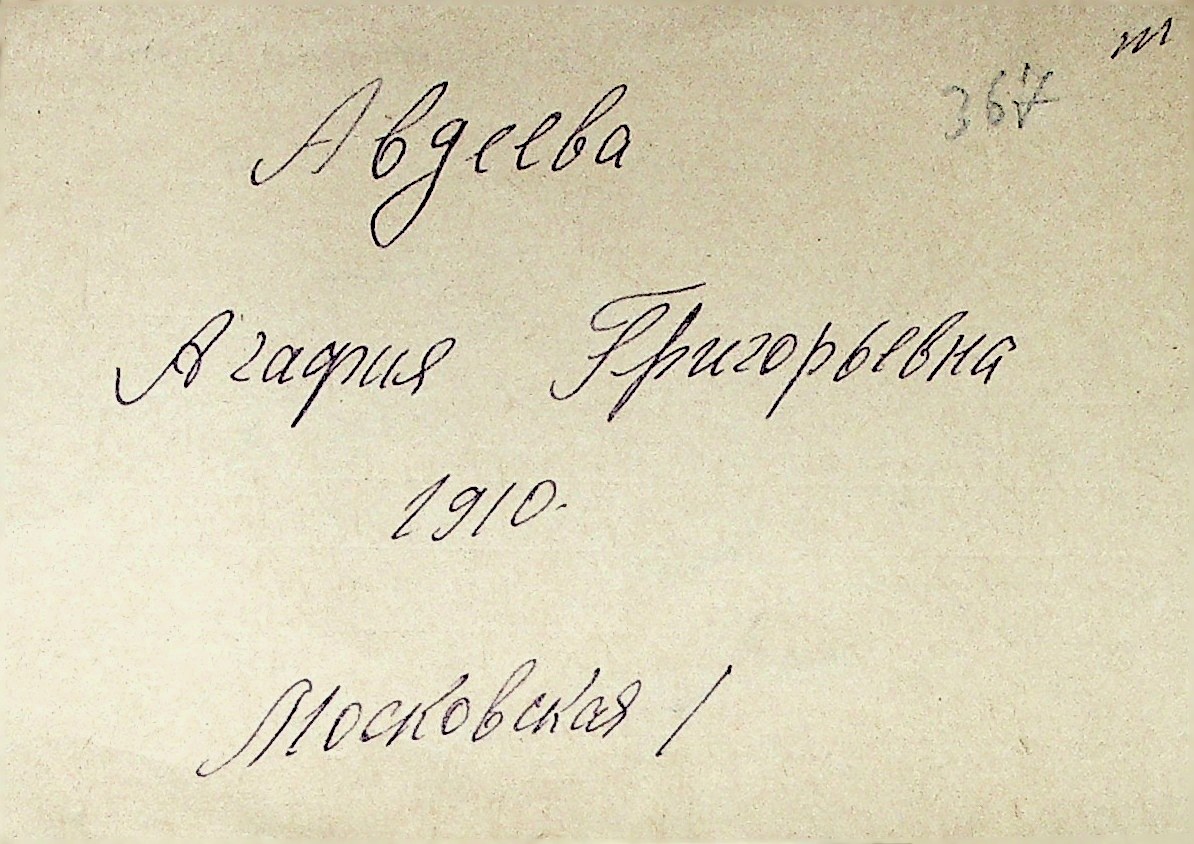 т
Авдеева
Агафия Григорьевна
1910.
Московская 1